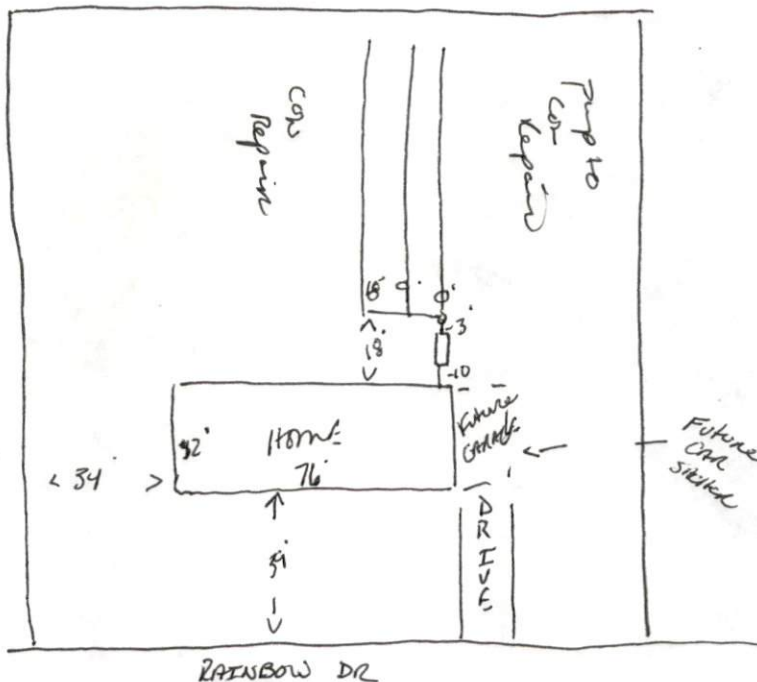 Con
Repair
Pump to
Con
Repair
18' 9' 0'
-3'
18'
-10
32'
HOME
76'
Future
GARAGE
Future
CAR
Shelter
< 34' >
39'
DRIVE
RAINBOW DR